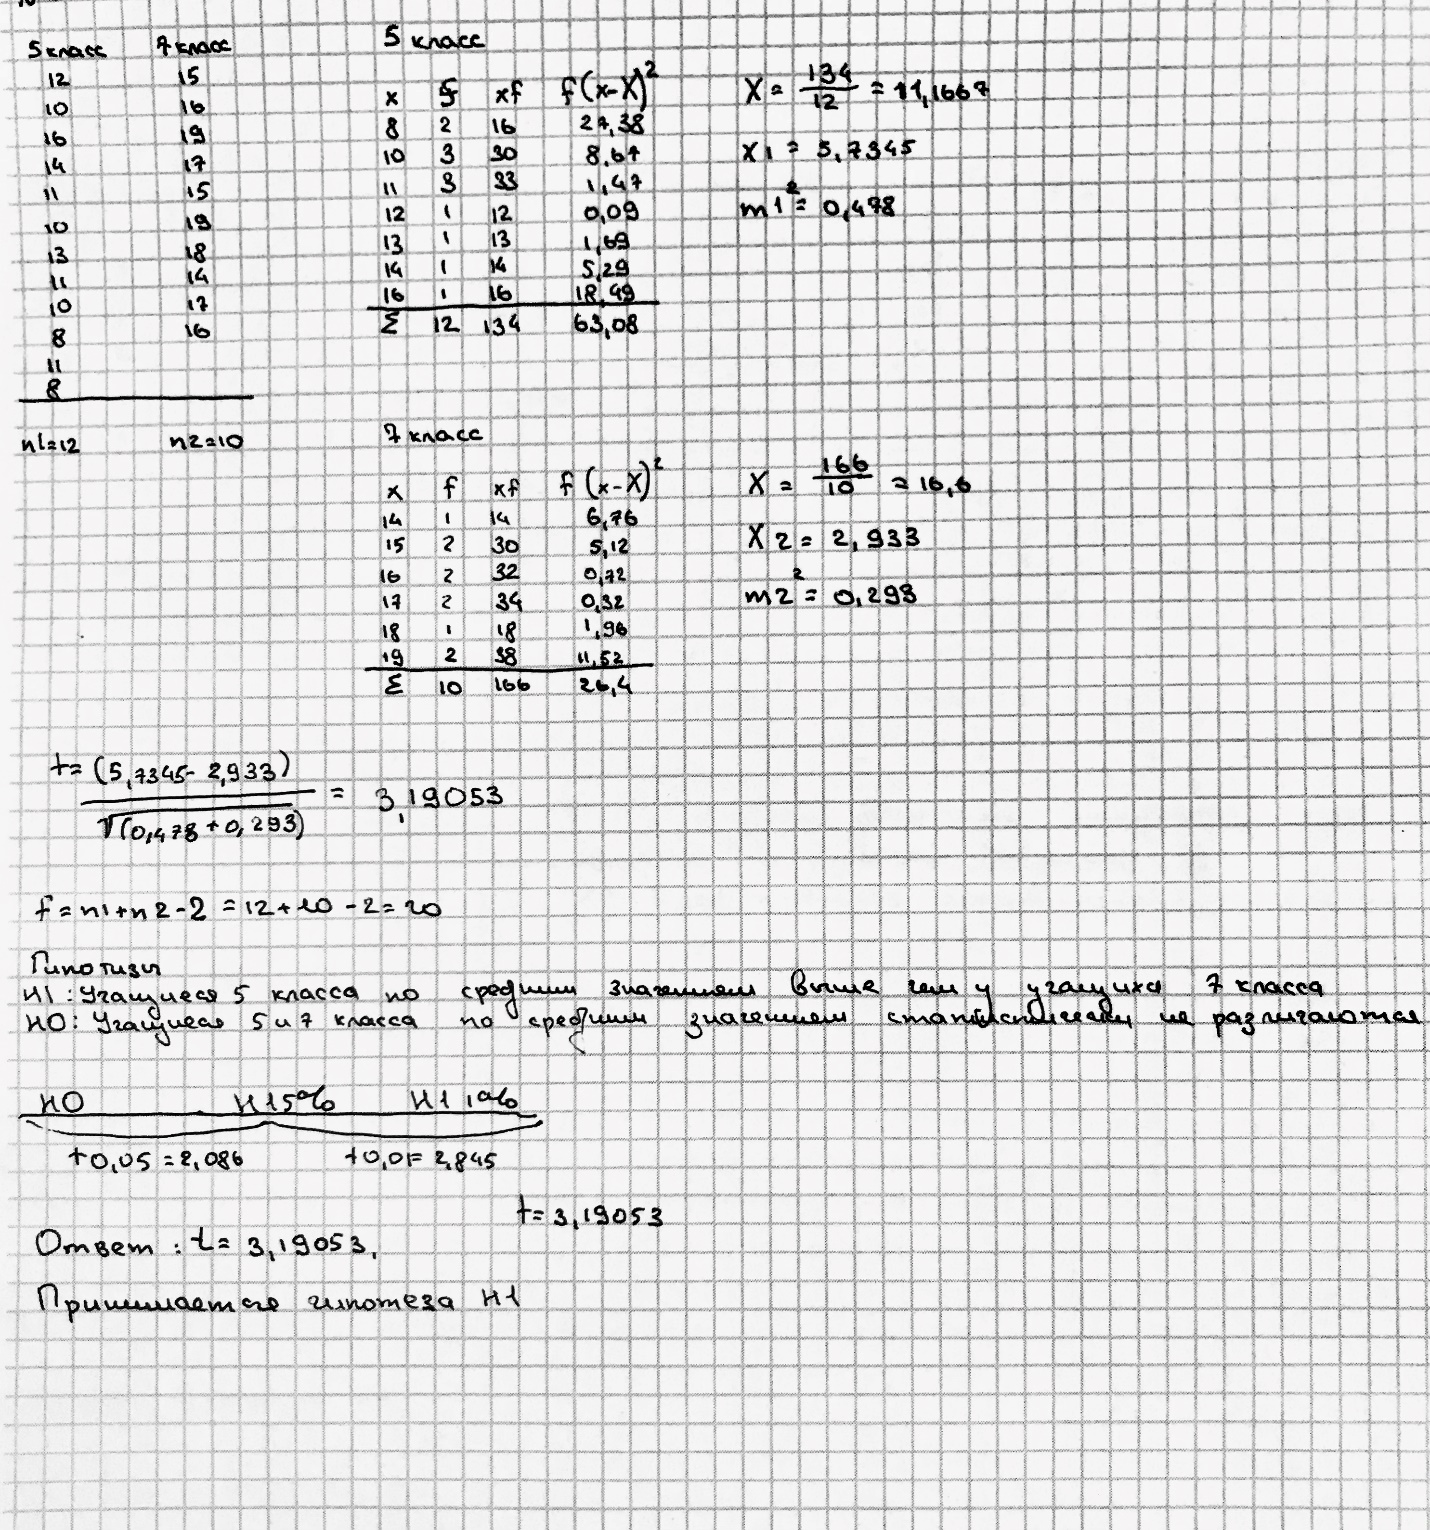 5 класс 7 класс
12 15
10 16
16 19
14 17
11 15
10 19
13 18
11 14
10 17
8 16
11
8
n1=12 n2=10
5 класс
x f xf f(x-X)²
8 2 16 27,38
10 3 30 8,67
11 3 33 1,47
12 1 12 0,09
13 1 13 1,69
14 1 14 5,29
16 1 16 18,49
Σ 12 134 63,08
X = 134/12 = 11,1667
X1 = 5,7345
m1² = 0,478
7 класс
x f xf f(x-X)²
14 1 14 6,76
15 2 30 5,12
16 2 32 0,72
17 2 34 0,32
18 1 18 1,96
19 2 38 11,52
Σ 10 166 26,4
X = 166/10 = 16,6
X2 = 2,933
m2² = 0,293
t = (5,7345 - 2,933) / √(0,478 + 0,293) = 3,19053
f = n1+n2-2 = 12+10-2 = 20
Гипотизы
H1: Учащиеся 5 класса по средним значением выше чем у учащихся 7 класса
H0: Учащиеся 5 и 7 класса по средним значением статистически не различаются
H0 H1 5% H1 1%
t0,05 = 2,086 t0,01= 2,845
t= 3,19053
Ответ: t= 3,19053,
Принимается гипотеза H1